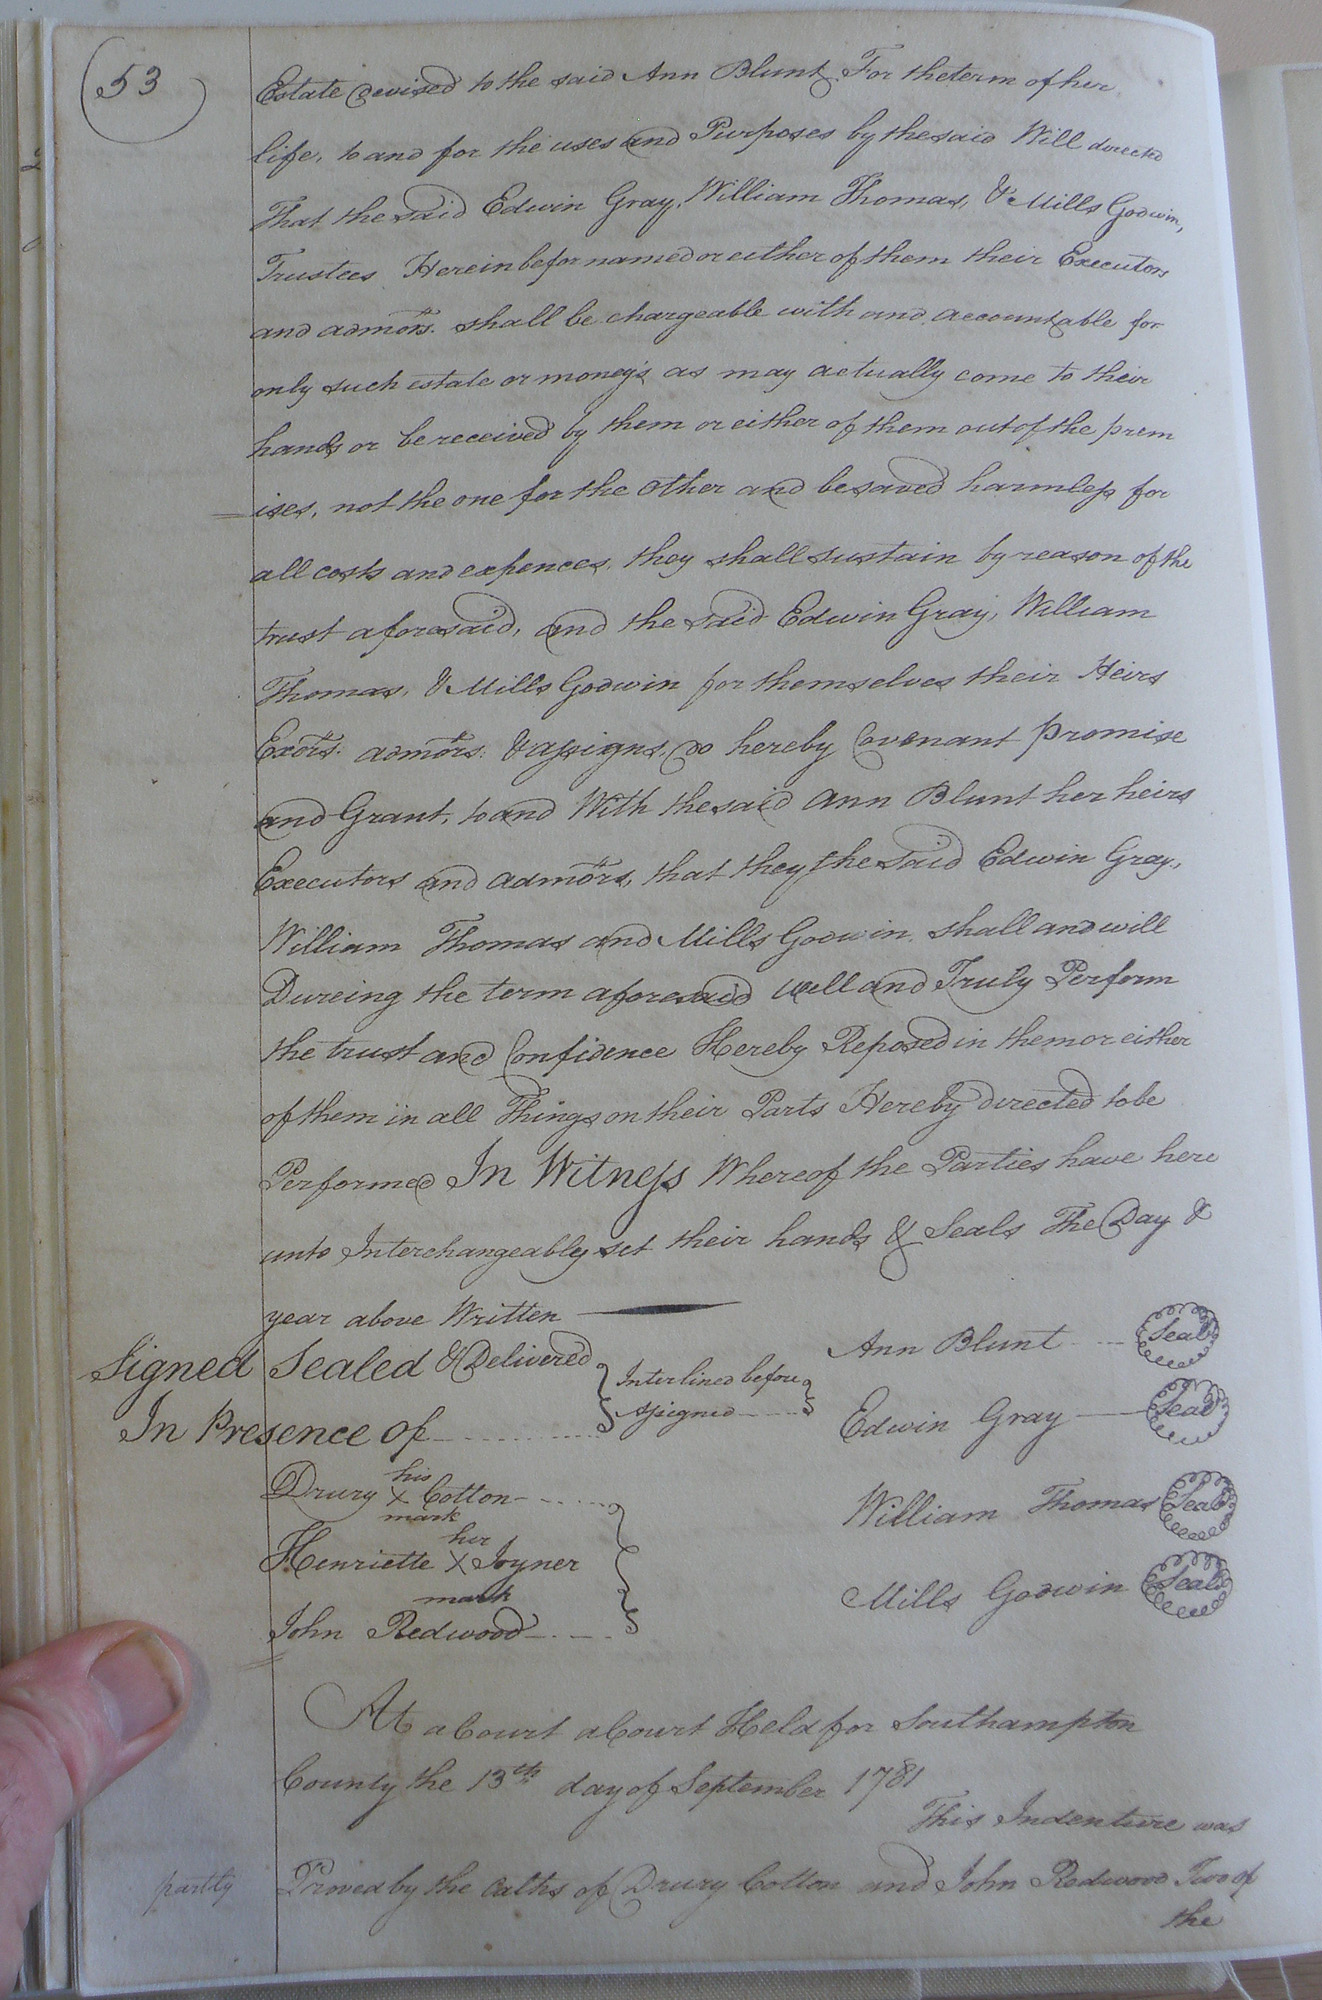 53
Estate devised to the said Ann Blunt For the term of her
life, to and for the uses and Purposes by the said Will directed
That the said Edwin Gray, William Thomas, & Mills Godwin,
Trustees Herein befor named or either of them their Executors
and admors. shall be chargeable with and accountable for
only such estate or money's as may actually come to their
hands or be received by them or either of them out of the prem
ises, not the one for the other and be saved harmless for
all costs and expences, they shall sustain by reason of the
trust aforesaid, and the said Edwin Gray, William
Thomas, & Mills Godwin for themselves their Heirs
Exors. admors. & assigns, do hereby Covenant promise
and Grant, to and With the said Ann Blunt her heirs
Executors and admors, that they the said Edwin Gray,
William Thomas and Mills Godwin shall and will
Dureing the term aforesaid well and Truly Perform
the trust and Confidence Hereby Reposed in them or either
of them in all Things on their Parts Hereby directed to be
Performed In Witness Whereof the Parties have here
unto Interchangeably set their hands & Seals The Day &
year above Written
Signed Sealed & Delivered
In Presence of
Interlined before
assigned
Ann Blunt Seal
Edwin Gray Seal
William Thomas Seal
Mills Godwin Seal
his
Drury X Cotton
mark
her
Henriette X Joyner
mark
John Redwood
At a Court a Court Held for Southampton
County the 13th day of September 1781
This Indenture was
partly
Proved by the Oaths of Drury Cotton and John Redwood Two of
the